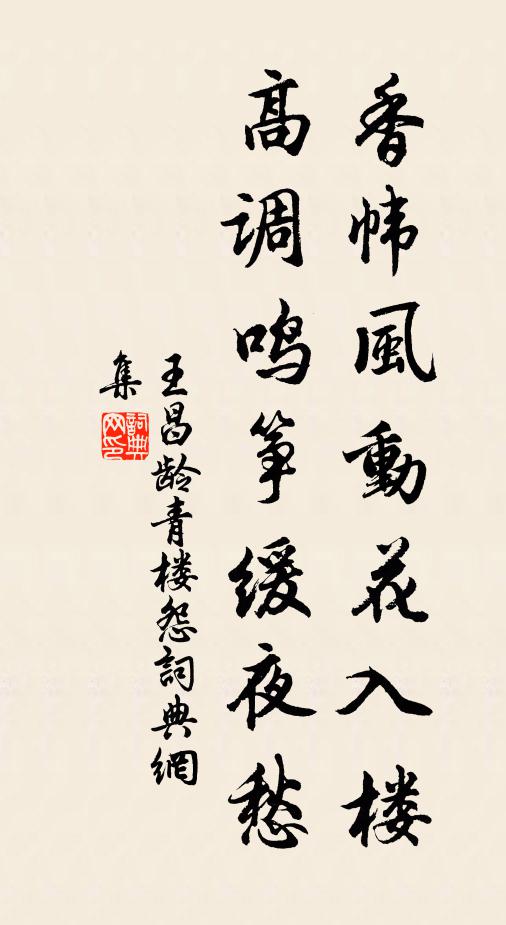 香帏風動花入楼
高调鸣筝缓夜愁
王昌龄青楼怨詞典網
集
詞典
网印